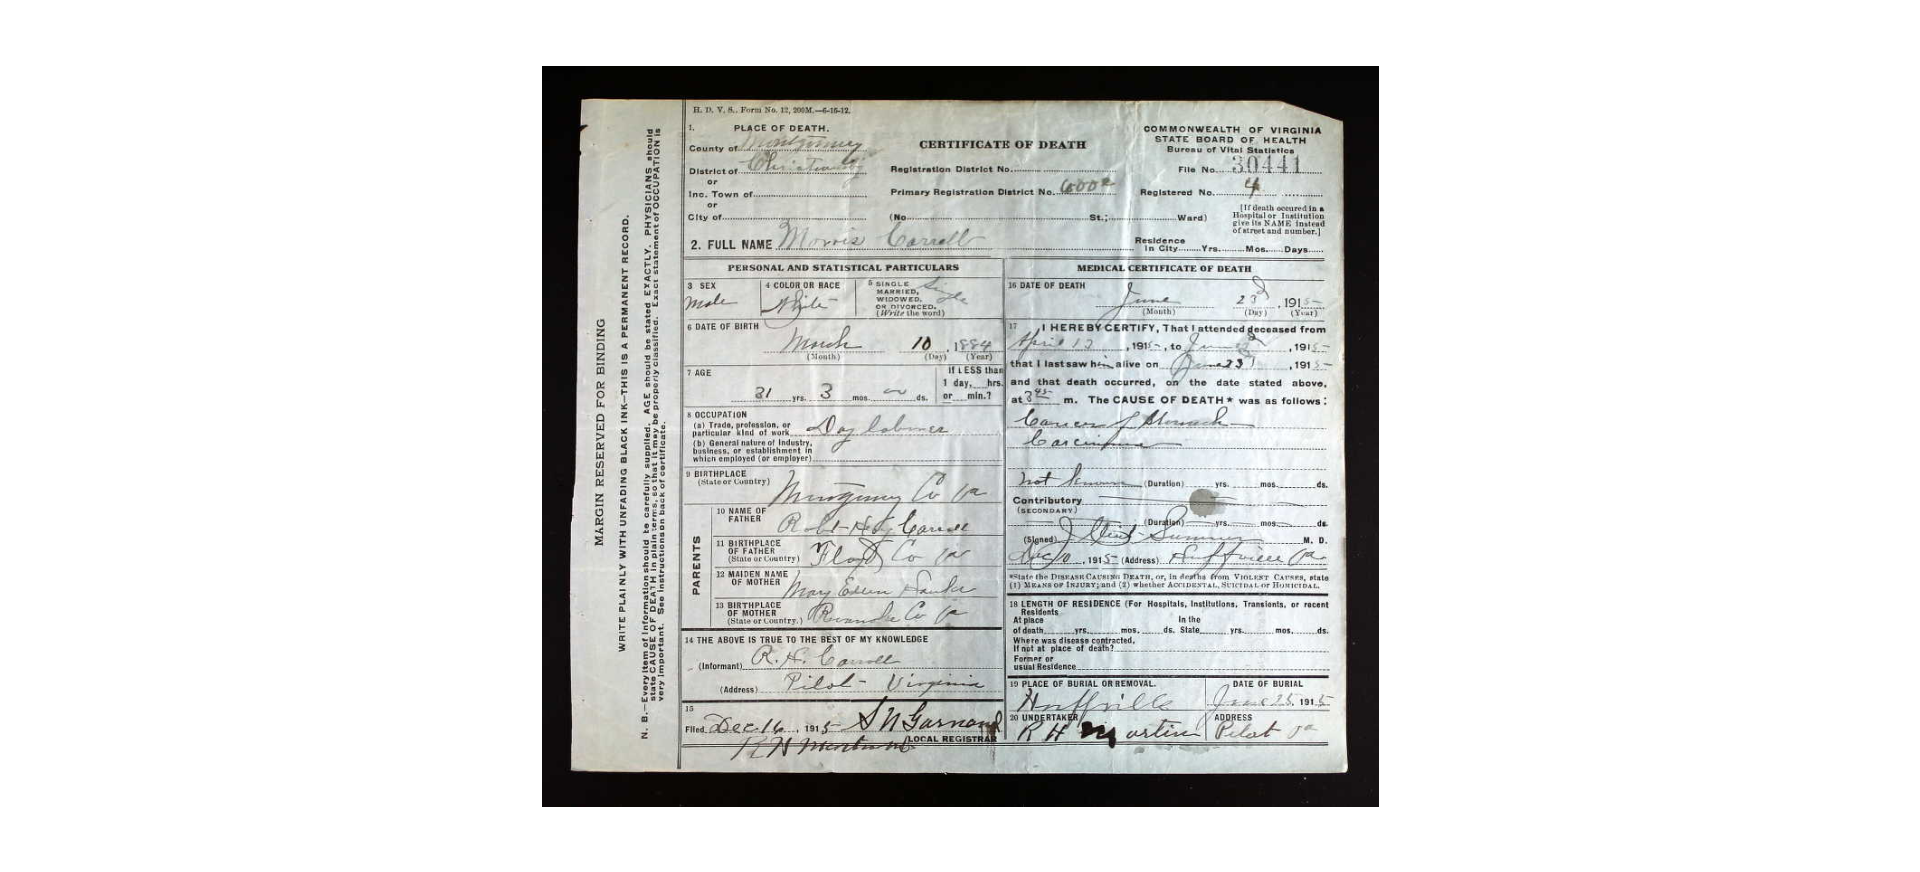 H. D. V. S., Form No. 12, 200M.—6-16-12.
1. PLACE OF DEATH.
County of Montgomery
District of
or
Inc. Town of
or
City of
CERTIFICATE OF DEATH
Registration District No.
Primary Registration District No.
(No. St.; Ward)
COMMONWEALTH OF VIRGINIA
STATE BOARD OF HEALTH
Bureau of Vital Statistics
File No. 30441
Registered No. 4
[If death occured in a
Hospital or Institution
give its NAME instead
of street and number.]
2. FULL NAME Morris Carroll
Residence
In City Yrs. Mos. Days
PERSONAL AND STATISTICAL PARTICULARS
3 SEX
Male
4 COLOR OR RACE
White
5 SINGLE
MARRIED,
WIDOWED,
OR DIVORCED.
(Write the word)
Single
6 DATE OF BIRTH
March 10, 1884
(Month) (Day) (Year)
7 AGE
31 yrs. 3 mos. ds.
If LESS than
1 day, hrs.
or min.?
8 OCCUPATION
(a) Trade, profession, or
particular kind of work Day laborer
(b) General nature of Industry,
business, or establishment in
which employed (or employer)
9 BIRTHPLACE
(State or Country)
Montgomery Co Va
PARENTS
10 NAME OF
FATHER
Robt Carroll
11 BIRTHPLACE
OF FATHER
(State or Country)
Floyd Co Va
12 MAIDEN NAME
OF MOTHER
Mary Ellen
13 BIRTHPLACE
OF MOTHER
(State or Country.)
Roanoke Co Va
14 THE ABOVE IS TRUE TO THE BEST OF MY KNOWLEDGE
(Informant) R. H. Carroll
(Address) Pilot Virginia
15
Filed Dec 16, 1915 S N Garnand
LOCAL REGISTRAR
MEDICAL CERTIFICATE OF DEATH
16 DATE OF DEATH
June 23, 1915
(Month) (Day) (Year)
17 I HEREBY CERTIFY, That I attended deceased from
April 12, 1915, to June, 1915
that I last saw him alive on June 23, 1915
and that death occurred, on the date stated above,
at 3 45 m. The CAUSE OF DEATH* was as follows:
Cancer of Stomach
Carcinoma
not known (Duration) yrs. mos. ds.
Contributory
(SECONDARY)
(Duration) yrs. mos. ds.
(Signed) M. D.
Dec 10, 1915 (Address) Huffville Va
*State the DISEASE CAUSING DEATH, or, in deaths from VIOLENT CAUSES, state
(1) MEANS OF INJURY; and (2) whether ACCIDENTAL, SUICIDAL or HOMICIDAL.
18 LENGTH OF RESIDENCE (For Hospitals, Institutions, Transients, or recent
Residents.
At place In the
of death yrs. mos. ds. State yrs. mos. ds.
Where was disease contracted,
If not at place of death?
Former or
usual Residence
19 PLACE OF BURIAL OR REMOVAL.
Huffville
DATE OF BURIAL
June 25, 1915
20 UNDERTAKER
R H Martin
ADDRESS
Pilot Va
MARGIN RESERVED FOR BINDING
WRITE PLAINLY WITH UNFADING BLACK INK—THIS IS A PERMANENT RECORD.
N. B.—Every item of information should be carefully supplied. AGE should be stated EXACTLY. PHYSICIANS should
state CAUSE OF DEATH in plain terms, so that it may be properly classified. Exact statement of OCCUPATION is
very important. See instructions on back of certificate.